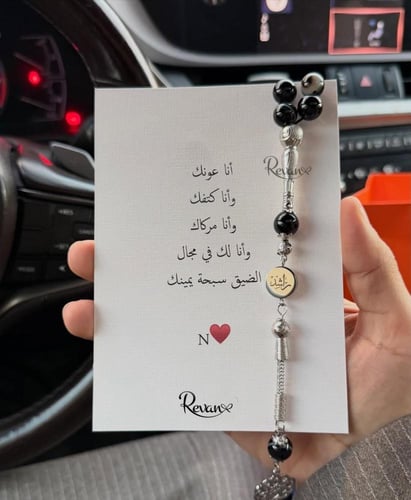 أنا عونك
وأنا كتفك
وأنا مركاك
وأنا لك في مجال
الضيق سبحة يمينك
N♥
Revan
Revan
راشد